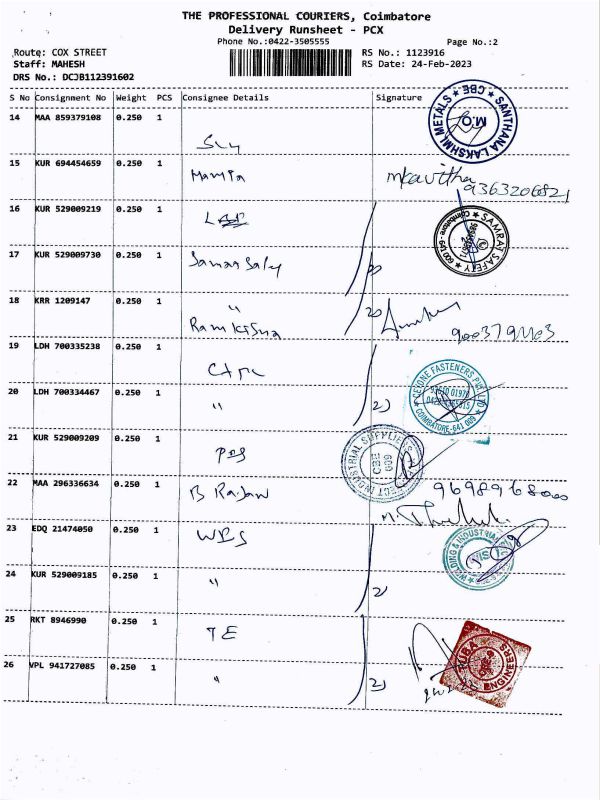 THE PROFESSIONAL COURIERS, Coimbatore
Delivery Runsheet - PCX
Phone No.:0422-3505555
Page No.:2
Route: COX STREET
RS No.: 1123916
Staff: MAHESH
RS Date: 24-Feb-2023
DRS No.: DCJB112391602
S No Consignment No Weight PCS Consignee Details Signature
14 MAA 859379108 0.250 1
SANTHANA LAKSHMI METALS ★ CBE ★
M.O.
15 KUR 694454659 0.250 1
mkavitha
9363206821
16 KUR 529009219 0.250 1
★ SAMRAT SAFETY ★ Coimbatore
17 KUR 529009730 0.250 1
Samrat Safety
18 KRR 1209147 0.250 1
"
Ramkrisna
19 LDH 700335238 0.250 1
★ CEIONE FASTENERS PVT LTD ★ COIMBATORE-641 009
20 LDH 700334467 0.250 1
" 2)
21 KUR 529009209 0.250 1
INDUSTRIAL SUPPLIERS
22 MAA 296336634 0.250 1
B Rajan
9698968000
23 EDQ 21474050 0.250 1
WES
24 KUR 529009185 0.250 1
" 2)
25 RKT 8946990 0.250 1
TE
ENGINEERS
26 VPL 941727085 0.250 1
" 2)